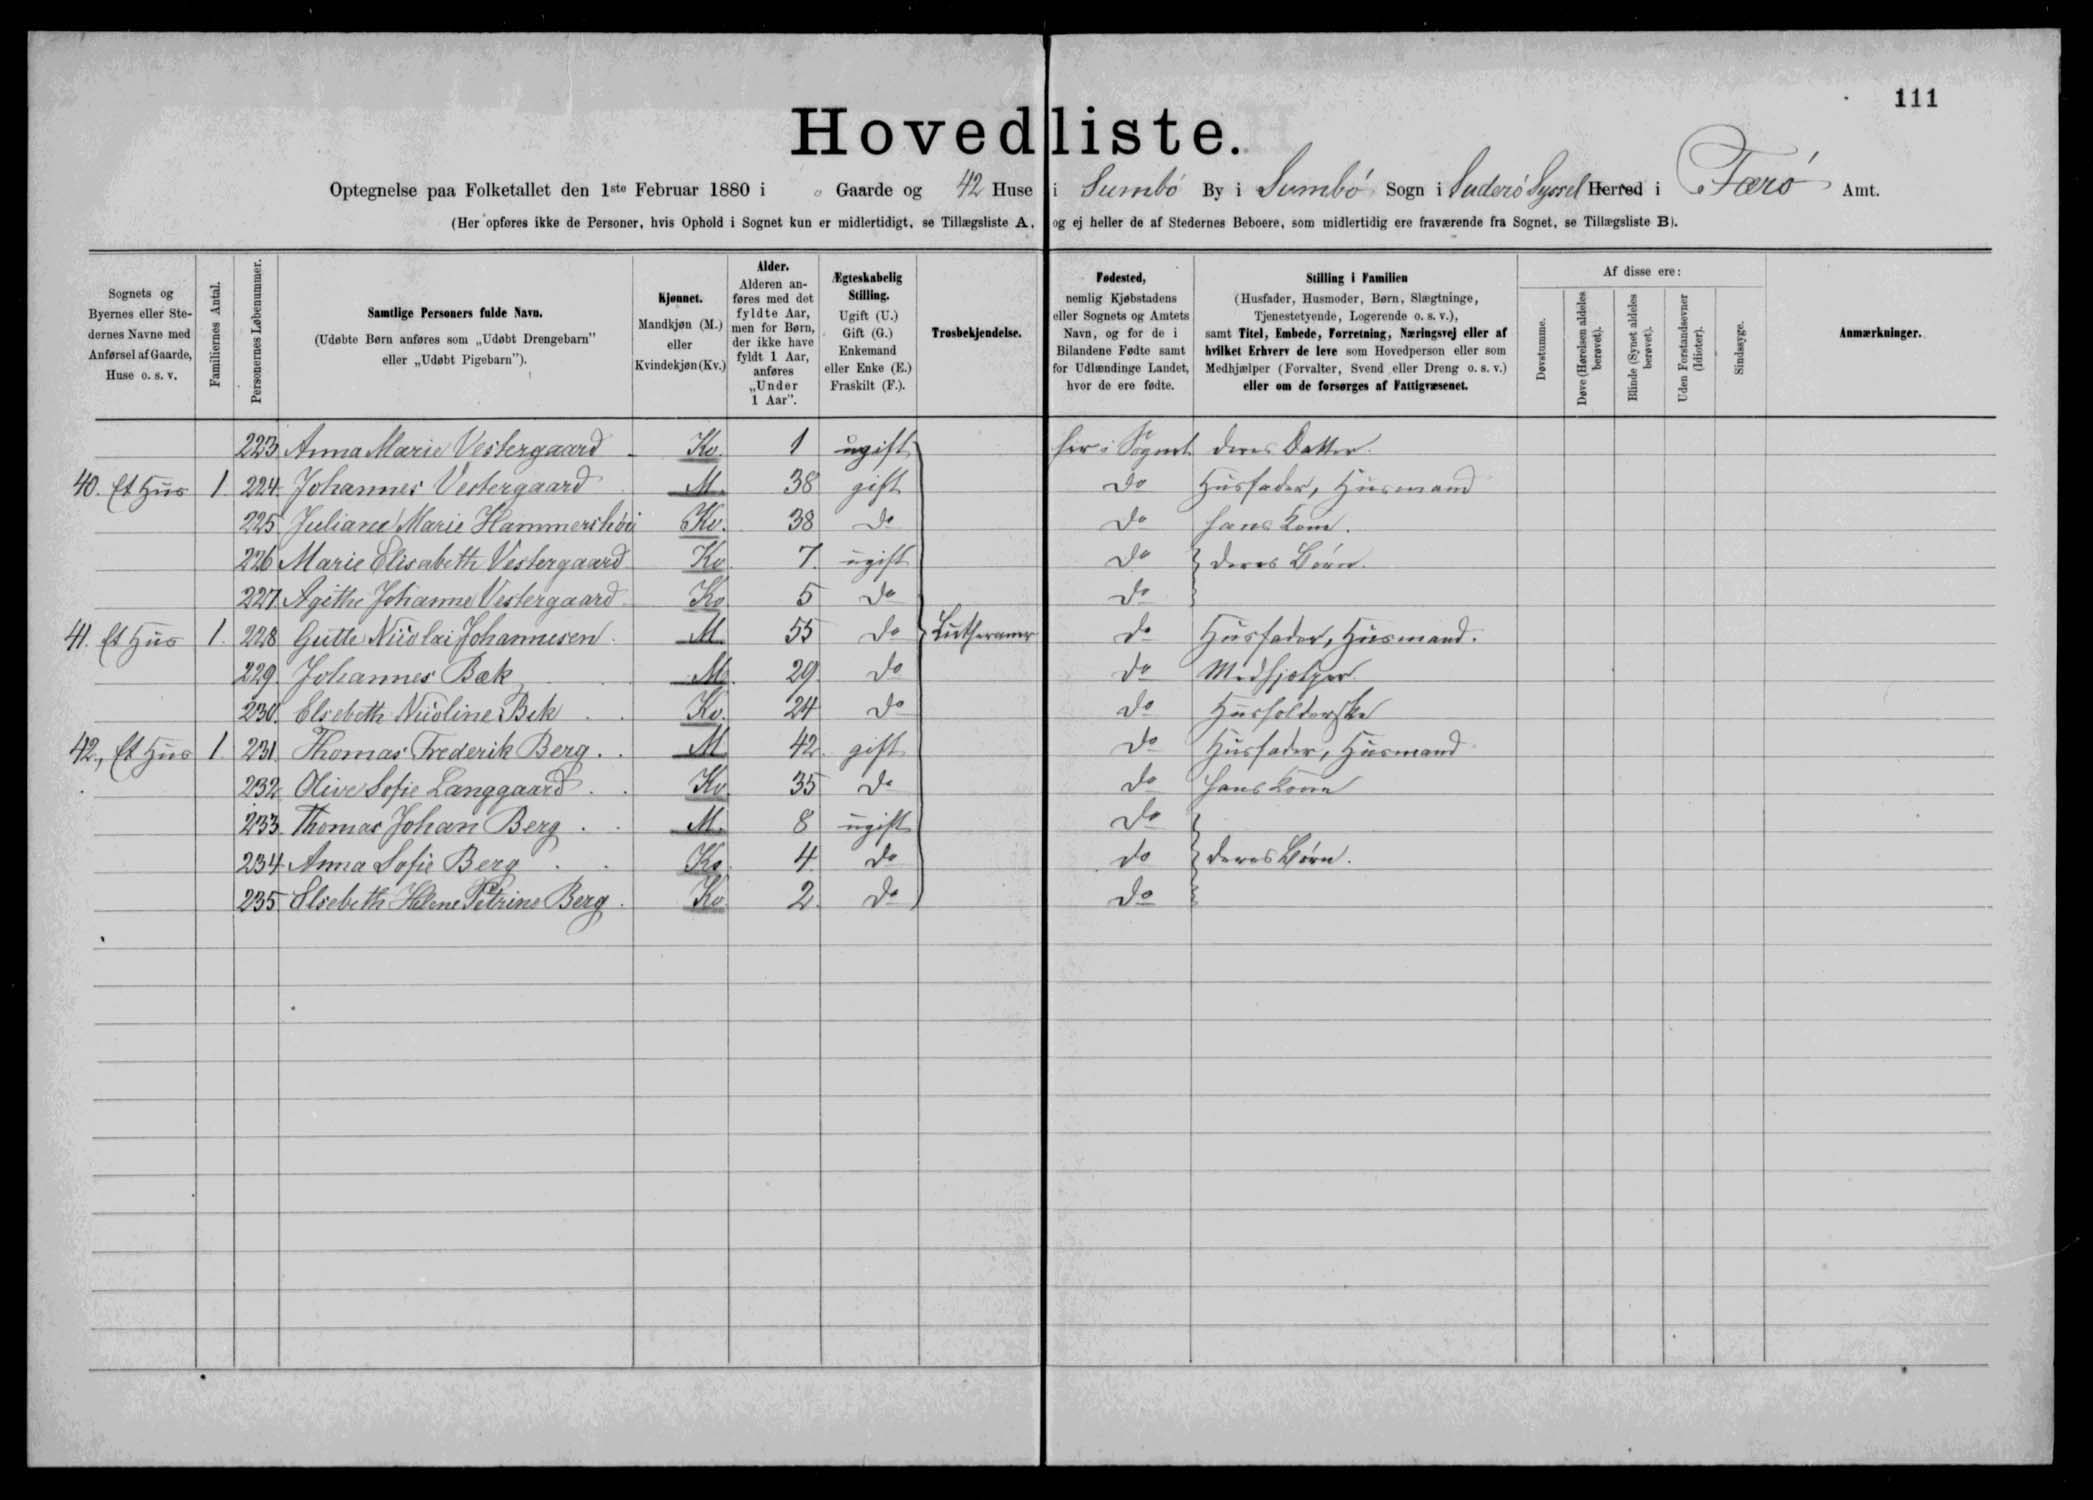 111
Hovedliste.
Optegnelse paa Folketallet den 1ste Februar 1880 i 0 Gaarde og 42 Huse i Sumbö By i Sumbö Sogn i Suderö Syssel Herred i Færö Amt.
(Her opføres ikke de Personer, hvis Ophold i Sognet kun er midlertidigt, se Tillægsliste A, og ej heller de af Stedernes Beboere, som midlertidig ere fraværende fra Sognet, se Tillægsliste B).
Sognets og Byernes eller Stedernes Navne med Anførsel af Gaarde, Huse o. s. v.
Familiernes Antal.
Personernes Løbenummer.
Samtlige Personers fulde Navn.
(Udøbte Børn anføres som „Udøbt Drengebarn” eller „Udøbt Pigebarn”).
Kjønnet.
Mandkjøn (M.) eller Kvindekjøn (Kv.)
Alder.
Alderen anføres med det fyldte Aar, men for Børn, der ikke have fyldt 1 Aar, anføres „Under 1 Aar”.
Ægteskabelig Stilling.
Ugift (U.) Gift (G.) Enkemand eller Enke (E.) Fraskilt (F.).
Trosbekjendelse.
Fødested,
nemlig Kjøbstadens eller Sognets og Amtets Navn, og for de i Bilandene Fødte samt for Udlændinge Landet, hvor de ere fødte.
Stilling i Familien
(Husfader, Husmoder, Børn, Slægtninge, Tjenestetyende, Logerende o. s. v.),
samt Titel, Embede, Forretning, Næringsvej eller af hvilket Erhverv de leve som Hovedperson eller som Medhjælper (Forvalter, Svend eller Dreng o. s. v.) eller om de forsørges af Fattigvæsenet.
Af disse ere:
Døvstumme.
Døve (Hørelsen aldeles berøvet).
Blinde (Synet aldeles berøvet).
Uden Forstandsevner (Idioter).
Sindssyge.
Anmærkninger.
223 Anna Marie Vestergaard Kv. 1 ugift her i Sognet deres Datter.
40. Et Hus 1. 224 Johannes Vestergaard M. 38 gift do Husfader, Husmand
225 Juliane Marie Hammershöi Kv. 38 do do hans Kone.
226 Marie Elisabeth Vestergaard Kv. 7. ugift do deres Börn.
227 Agithe Johanne Vestergaard Kv. 5 do do
41. Et Hus 1. 228 Gutte Nicolai Johannesen. M. 55 do Lutheraner do Husfader, Husmand.
229 Johannes Bæk M. 29 do do Medhjælper
230. Elsebeth Nicoline Bek Kv. 24 do do Husholderske
42, Et Hus 1. 231. Thomas Frederik Berg. M 42. gift do Husfader, Husmand
232 Olive Sofie Langgaard Kv. 35 do do hans Kone
233. Thomas Johan Berg M. 8 ugift do
234 Anna Sofie Berg Kv. 4. do do deres Börn.
235 Elsebeth Helene Petrine Berg. Kv. 2. do do